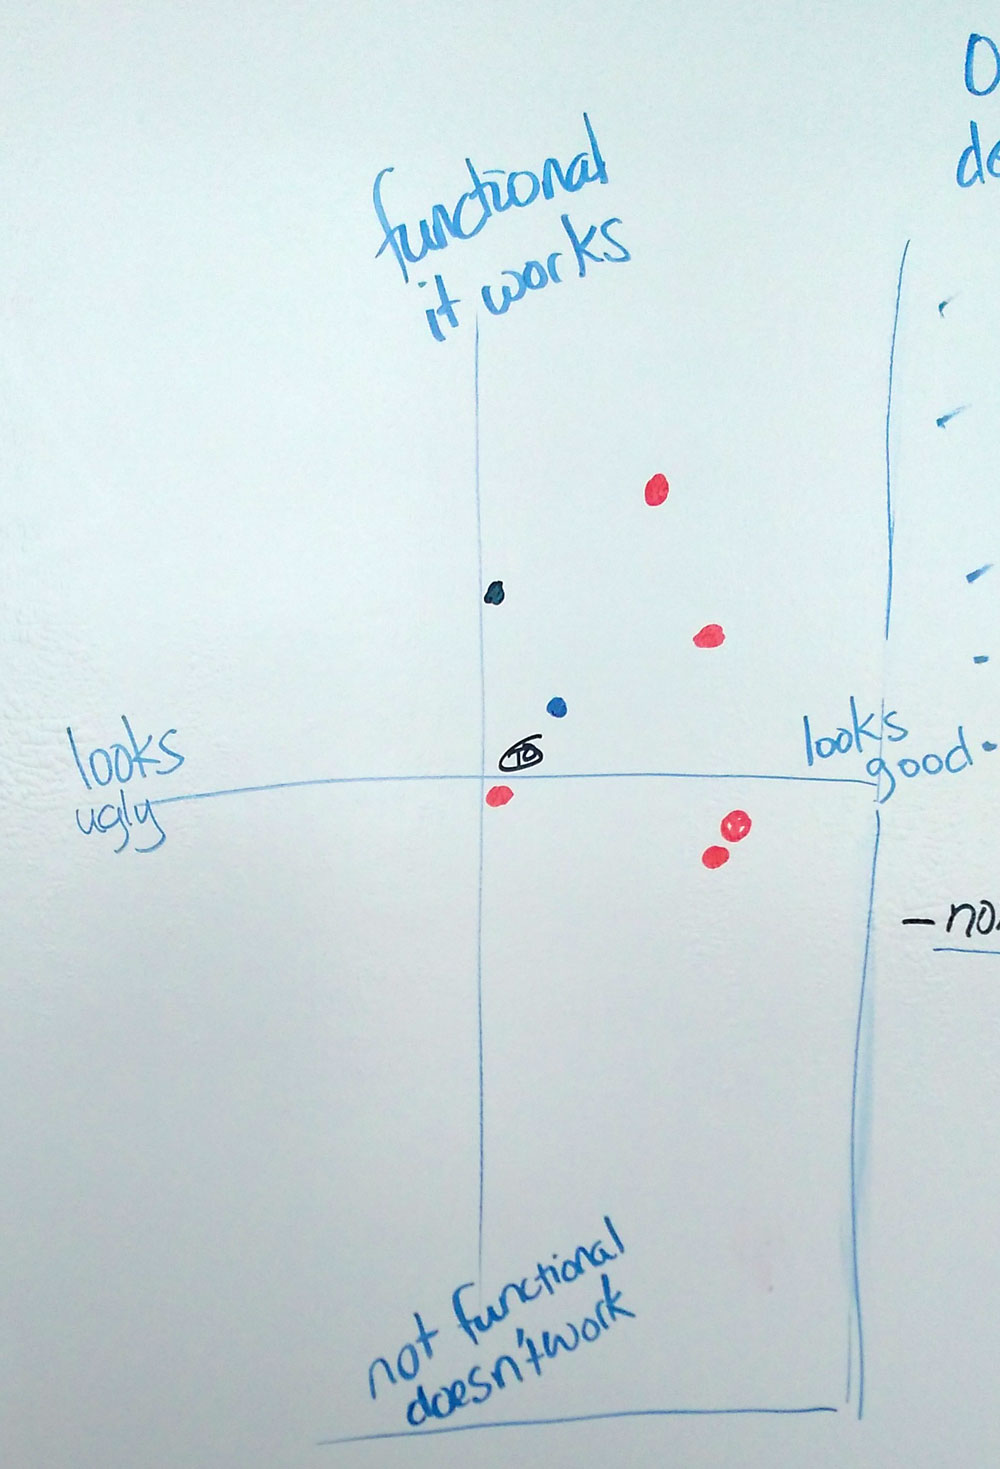 functional
it works
looks
ugly
looks
good
TO
- no
not functional
doesn't work